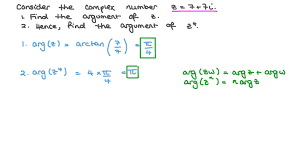 Consider the complex number z = 7 + 7i.
1. Find the argument of z.
2. Hence, find the argument of z⁴.
1. arg(z) = arctan(7/7) = π/4
2. arg(z⁴) = 4 × π/4 = π
arg(zw) = arg z + arg w
arg(zⁿ) = n arg z